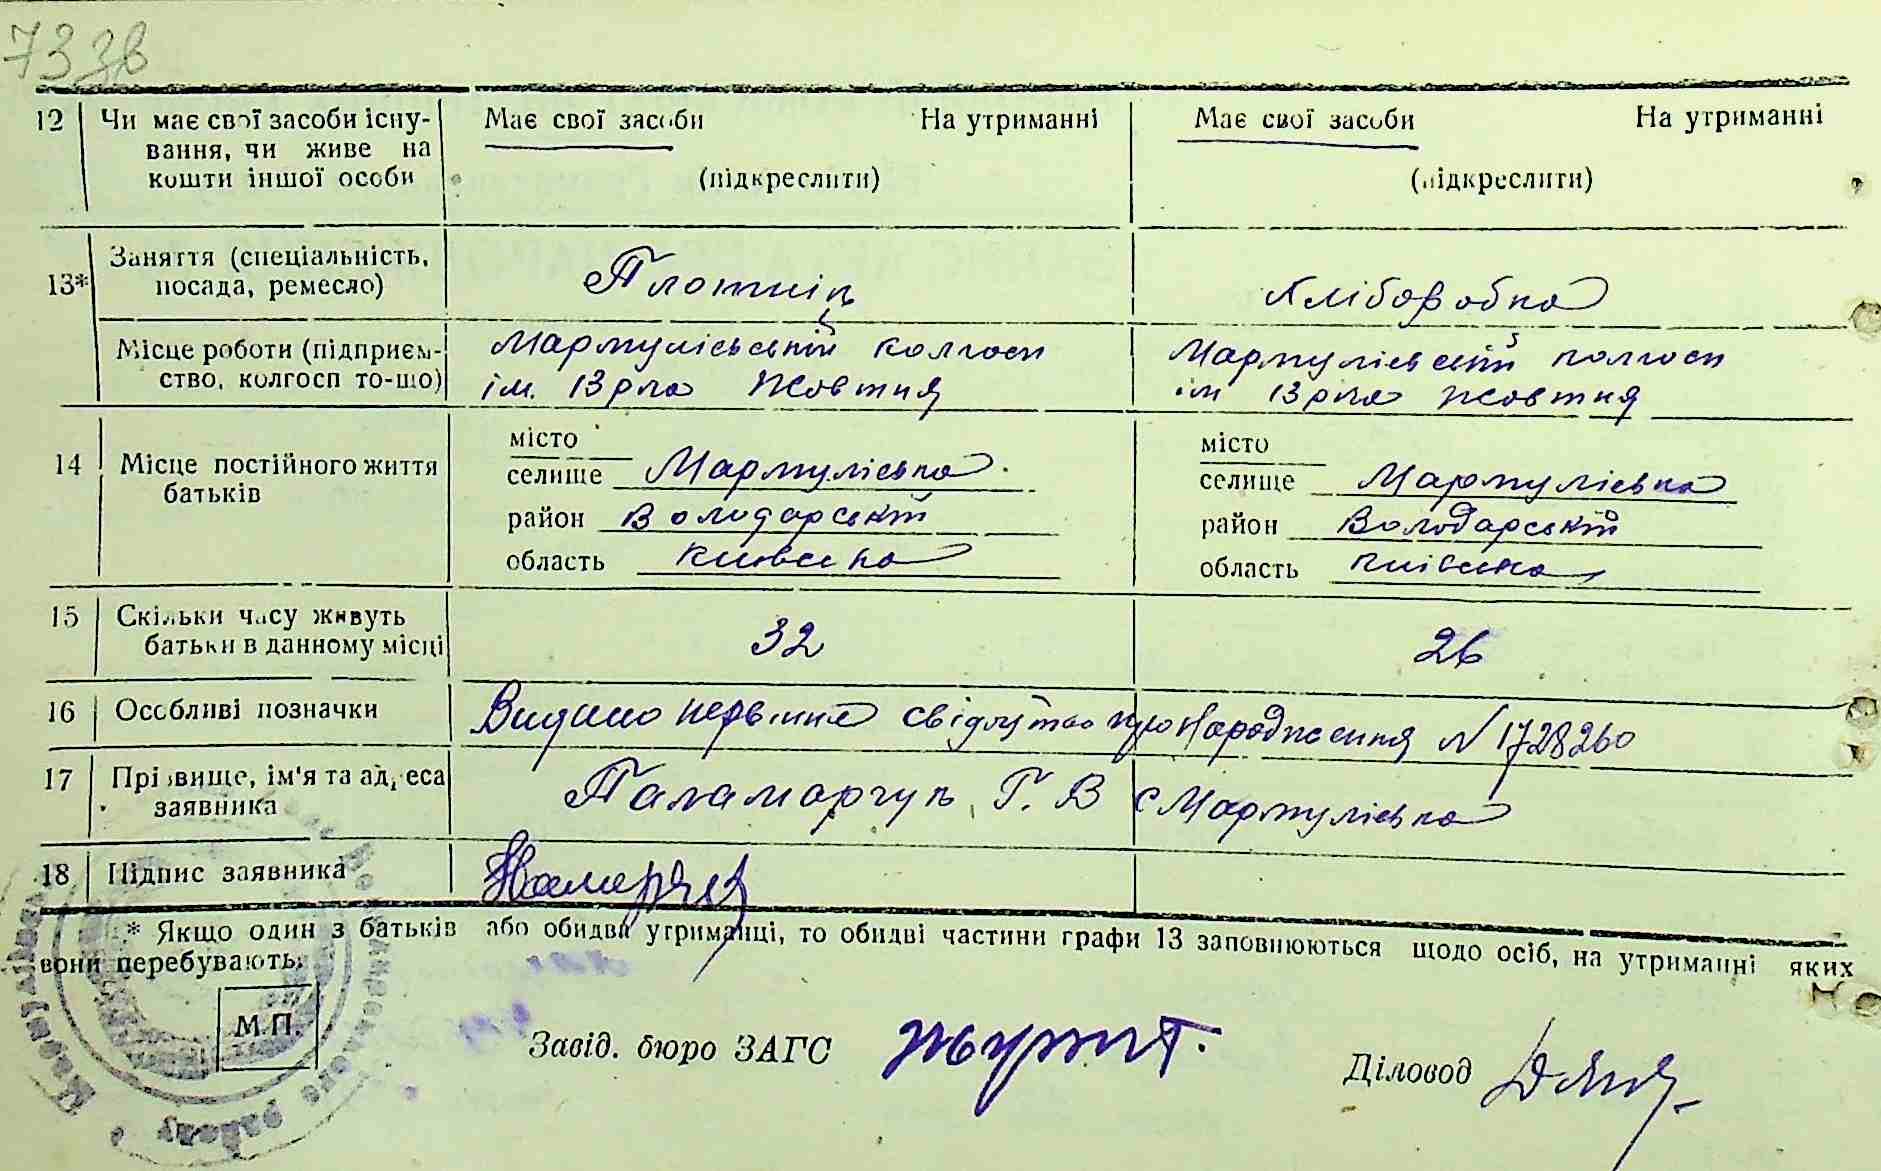 73 зв
12 Чи має свої засоби існу- Має свої засоби На утриманні Має свої засоби На утриманні
вання, чи живе на
кошти іншої особи (підкреслити) (підкреслити)
13* Заняття (спеціальність, посада, ремесло) Плотнік Хліборобка
Місце роботи (підприєм- Мармуліївський колгосп Мармуліївський колгосп
ство, колгосп то-що) ім. 13 р-ча Жовтня ім 13 р-ча Жовтня
14 Місце постійного життя батьків
місто місто
селище Мармуліївка селище Мармуліївка
район Володарський район Володарський
область Київська область Київська
15 Скільки часу живуть
батьки в данному місці 32 26
16 Особливі позначки Видано первинне свідоцтво про Народження N 1728260
17 Прізвище, ім'я та адреса Паламарчук Г. В с Мармуліївка
заявника
18 Підпис заявника
* Якщо один з батьків або обидва утриманці, то обидві частини графи 13 заповнюються щодо осіб, на утриманні яких
вони перебувають.
М.П.
Завід. бюро ЗАГС Діловод
району